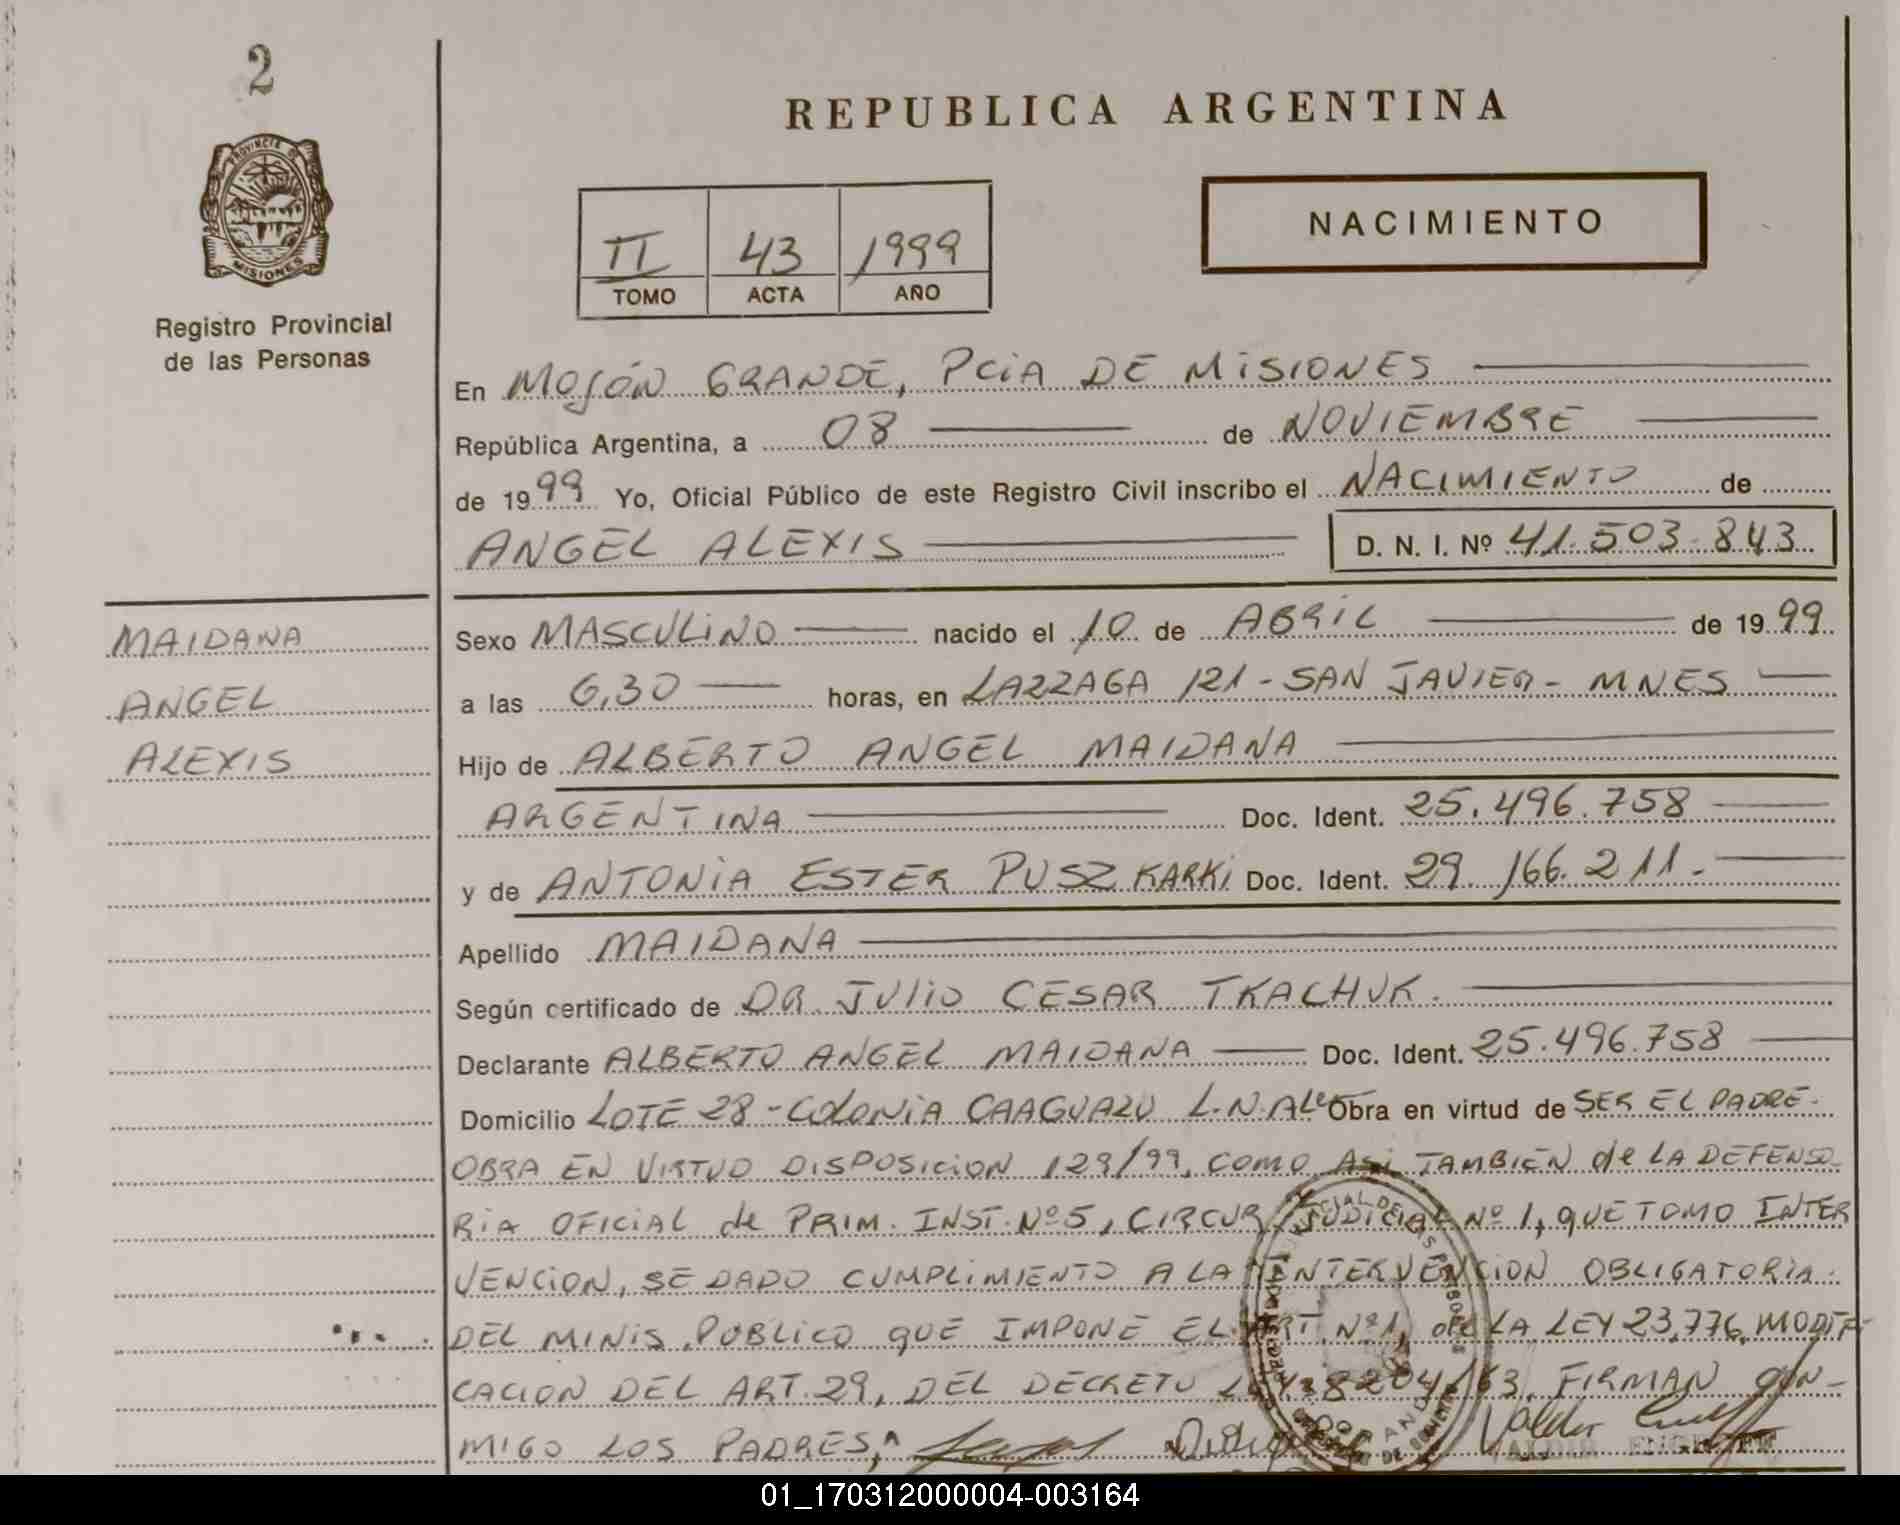 2
PROVINCIA DE
MISIONES
Registro Provincial
de las Personas
REPUBLICA ARGENTINA
II 43 1999
TOMO ACTA AÑO
NACIMIENTO
En MOJÓN GRANDE, PCiA DE MiSIONES
República Argentina, a 08 de NOVIEMBRE
de 1999 Yo, Oficial Público de este Registro Civil inscribo el NACIMIENTO de
ANGEL ALEXIS D. N. I. Nº 41.503.843
MAIDANA
ANGEL
ALEXIS
Sexo MASCULiNO nacido el 10 de ABRIL de 1999
a las 6,30 horas, en LAZZAGA 121 - SAN JAVIER - MNES
Hijo de ALBERTO ANGEL MAIDANA
ARGENTINA Doc. Ident. 25.496.758
y de ANTONiA ESTER PUSZKARKi Doc. Ident. 29.166.211.
Apellido MAIDANA
Según certificado de DR. JULiO CESAR TKACHUK.
Declarante ALBERTO ANGEL MAIDANA Doc. Ident. 25.496.758
Domicilio LOTE 28 - COLONiA CAAGUAZU L.N. Obra en virtud de SER EL PADRE.
OBRA EN VIRTUD DISPOSICION 129/99, COMO ASi TAMBIEN de LA DEFENSO-
RiA OFICIAL de PRIM. INST. Nº 5, CIRCUR JUDICIAL Nº 1, qUE TOMO INTER
VENCION, SE DADO CUMPLiMIENTO A LA INTERVENCION OBLIGATORIA
DEL MINIS. PUBLICO qUE IMPONE EL ART. Nº 1, de LA LEY 23.776, MODIFI-
CACION DEL ART. 29, DEL DECRETO FIRMAN CON-
MIGO LOS PADRES,
01_170312000004-003164